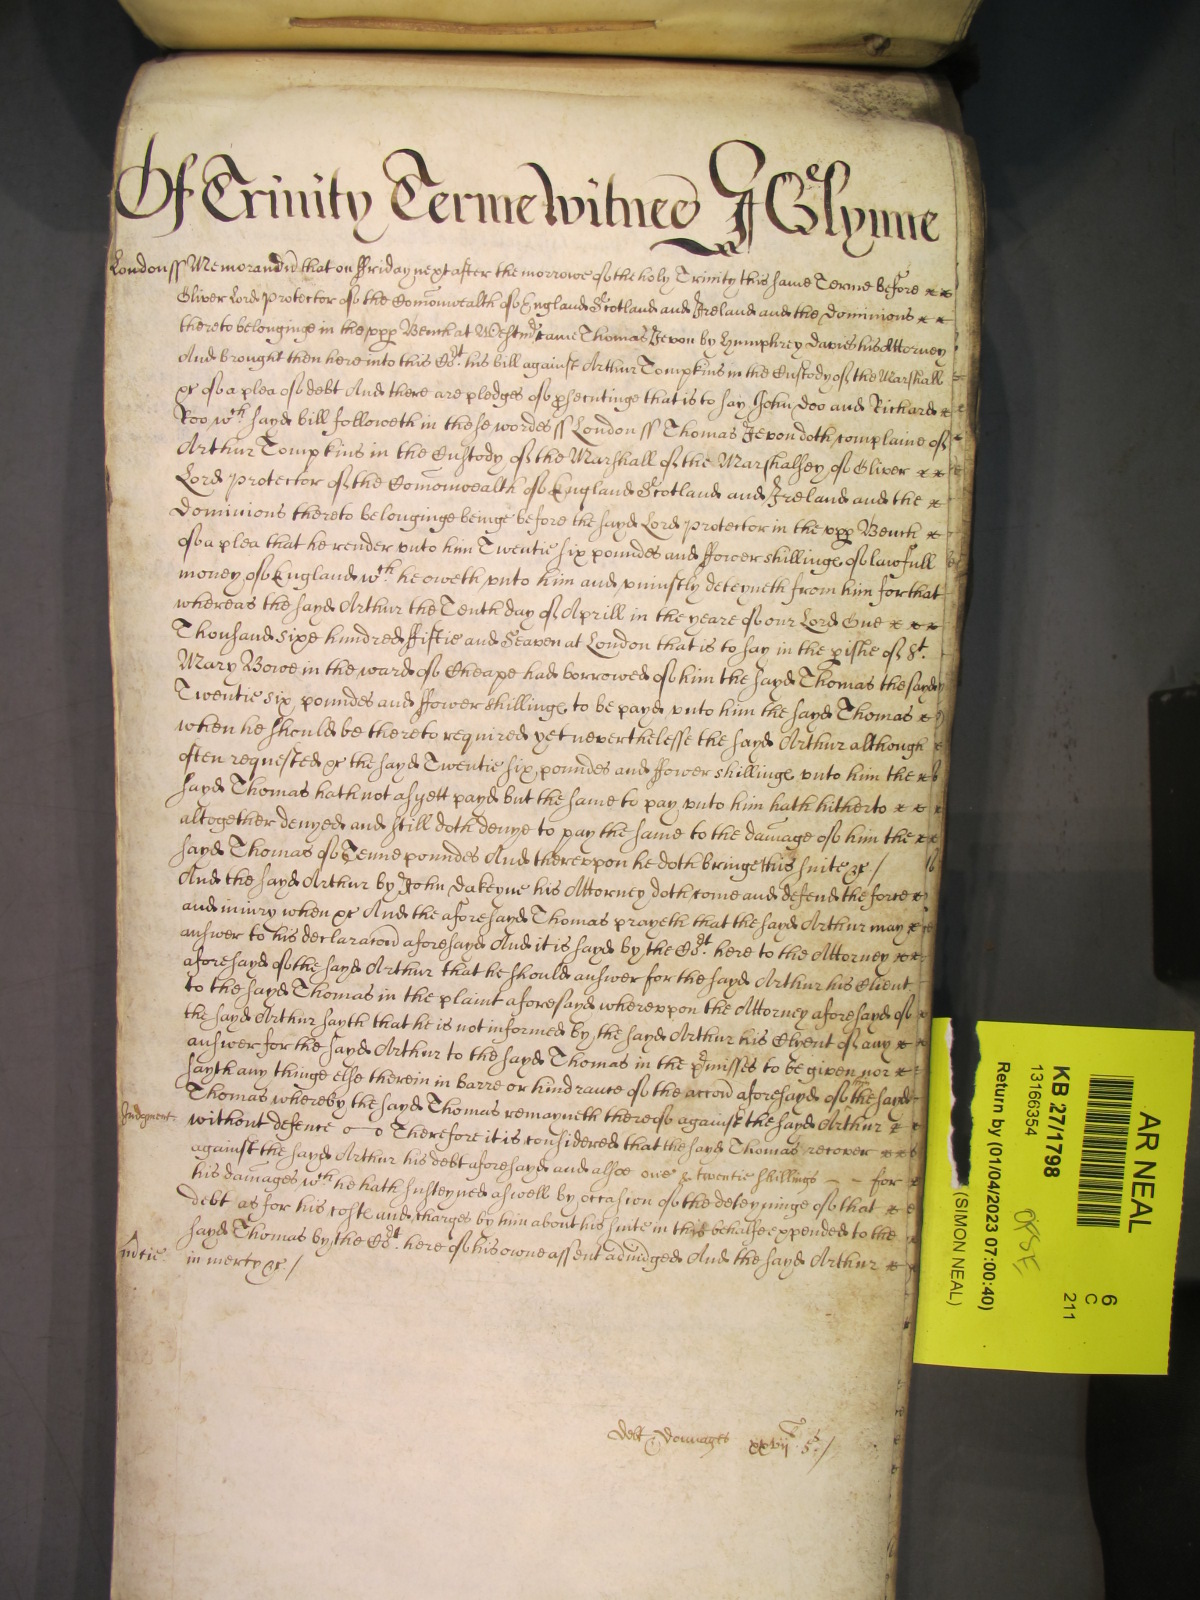 Of Trinity Terme Witnes J Glynne
London ss Memorand͞d that on Friday next after the morrowe of the holy Trinity this same Terme before
Oliver Lord Protector of the Com̄onwealth of England Scotland and Ireland and the dominions
thereto belonginge in the upp Bench at Westmr came Thomas Jevon by Humphrey Davies his Attorney
And brought then here into this Cort his bill against Arthur Tompkins in the Custody of the Marshall
&c of a plea of debt And there are pledges of psecutinge that is to say John Doo and Richard
Roo wch sayd bill followeth in these wordes ss London ss Thomas Jevon doth complaine of
Arthur Tompkins in the Custody of the Marshall of the Marshalsey of Oliver
Lord Protector of the Com̄onwealth of England Scotland and Ireland and the
Dominions thereto belonginge beinge before the sayd Lord Protector in the upp Bench
of a plea that he render unto him Twentie six poundes and Fower shillings of lawfull
money of England wch he oweth unto him and uniustly deteyneth from him for that
whereas the sayd Arthur the Tenth day of Aprill in the yeare of our Lord One
Thousand sixe hundred Fiftie and Seaven at London that is to say in the pishe of St.
Mary Bowe in the ward of Cheape had borrowed of him the sayd Thomas the sayd
Twentie six poundes and Fower shillings to be payd unto him the sayd Thomas
when he should be thereto required yet neverthelesse the sayd Arthur although
often requested &c the sayd Twentie six poundes and Fower shillings unto him the
sayd Thomas hath not as yett payd but the same to pay unto him hath hitherto
altogether denyed and still doth denye to pay the same to the damage of him the
sayd Thomas of Tenne poundes And thereupon he doth bringe this suite &c /
And the sayd Arthur by John Dakeyne his Attorney doth come and defend the force
and iniury when &c And the aforesayd Thomas prayeth that the sayd Arthur may
answer to his declaracōn aforesayd And it is sayd by the Cort here to the Attorney
aforesayd of the sayd Arthur that he should answer for the sayd Arthur his Client
to the sayd Thomas in the plaint aforesayd whereupon the Attorney aforesayd of
the sayd Arthur sayth that he is not informed by the sayd Arthur his Clyent of any
answer for the sayd Arthur to the sayd Thomas in the pmisses to be given nor
sayth any thinge else therein in barre or hindrance of the accōn aforesayd of the sayd
Thomas whereby the sayd Thomas remayneth thereof against the sayd Arthur
Judgment. without defence Therefore it is considered that the sayd Thomas recover
against the sayd Arthur his debt aforesayd and alsoe one & twentie shillings – – for
his damages wch he hath susteyned aswell by occasion of the deteyninge of that
debt as for his costs and charges by him about his suite in this behalfe expended to the
sayd Thomas by the Cort here of his owne assent adiudged And the sayd Arthur
m̄cie in mercy &c /
Debt & Damages xxvij li 5s /
AR NEAL
KB 27/1798
13166354
Return by (01/04/2023 07:00:40)
(SIMON NEAL)
6
C
211